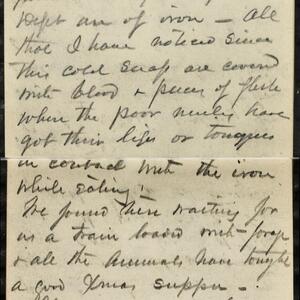 Dept are of iron - all
that I have noticed since
this cold snap are covered
with blood & pieces of flesh
where the poor mules have
got their lips or tongues
in contact with the iron
while eating.
We found here waiting for
us a train loaded with forage
& all the animals have tonight
a good Xmas supper -